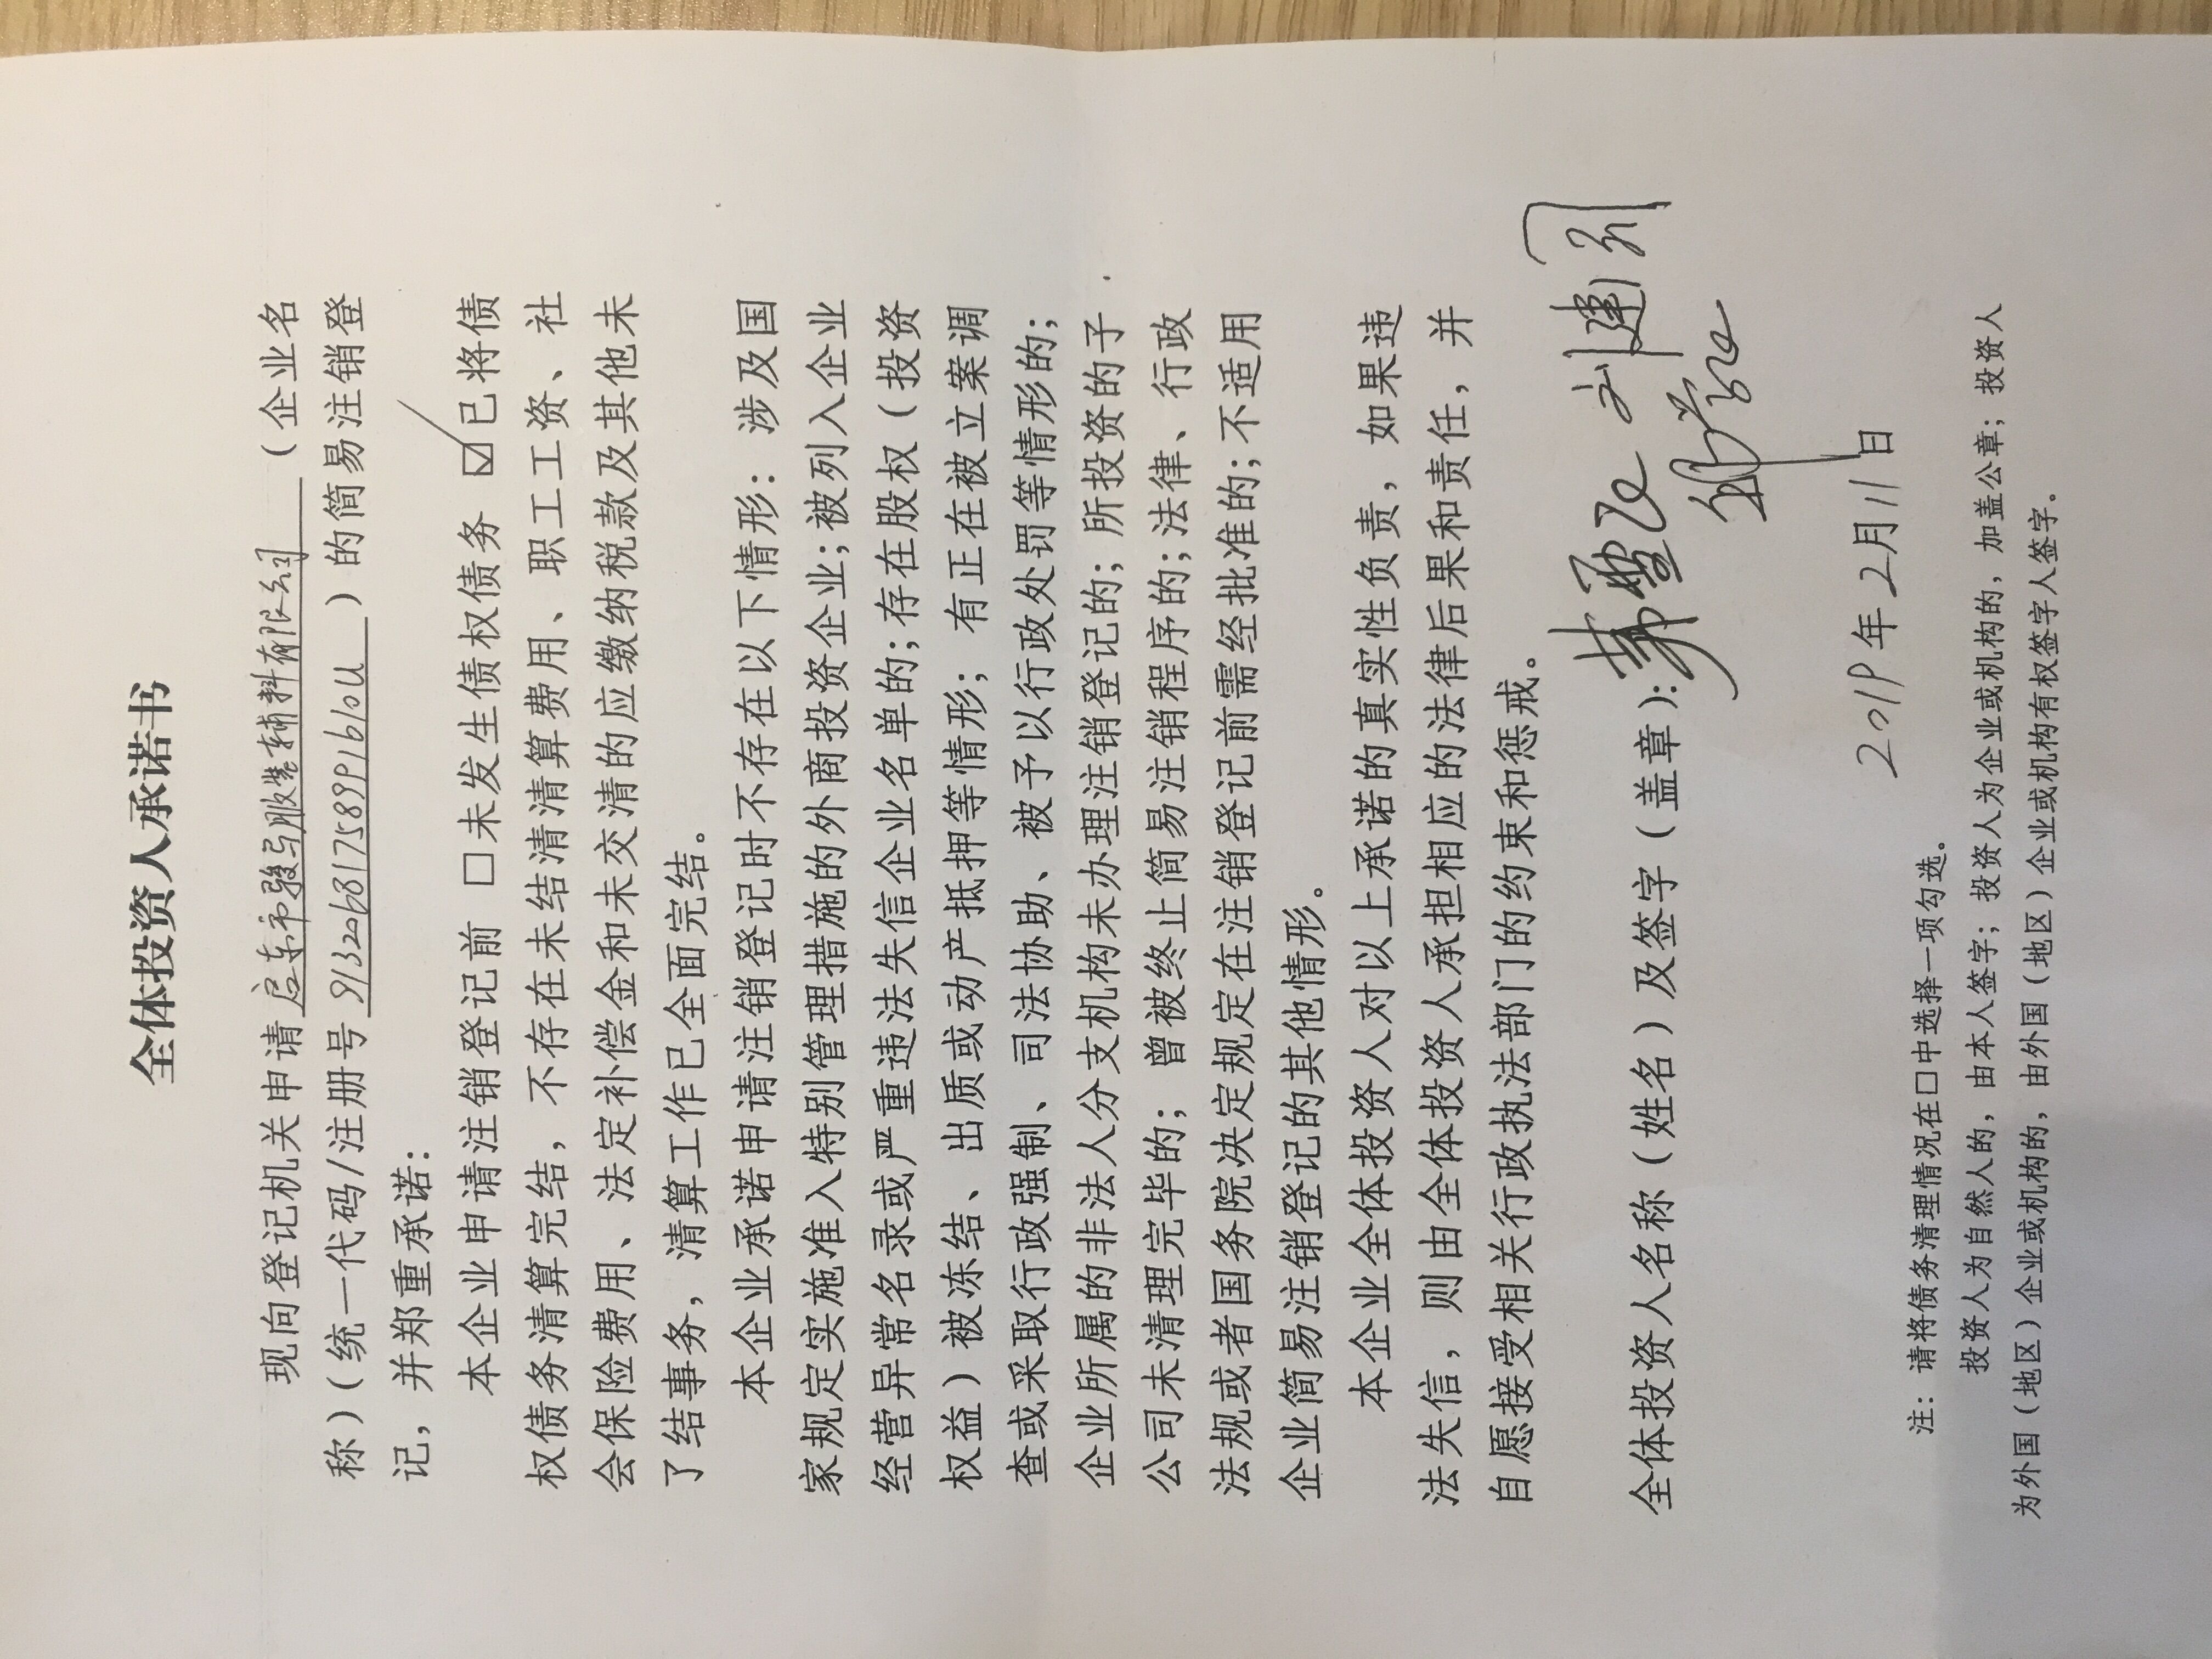 全体投资人承诺书
现向登记机关申请启东市骏马服装辅料有限公司（企业名
称）（统一代码/注册号91320681758991610U）的简易注销登
记，并郑重承诺：
本企业申请注销登记前 □未发生债权债务 ☑已将债
权债务清算完结，不存在未结清清算费用、职工工资、社
会保险费用、法定补偿金和未交清的应缴纳税款及其他未
了结事务，清算工作已全面完结。
本企业承诺申请注销登记时不存在以下情形：涉及国
家规定实施准入特别管理措施的外商投资企业；被列入企业
经营异常名录或严重违法失信企业名单的；存在股权（投资
权益）被冻结、出质或动产抵押等情形；有正在被立案调
查或采取行政强制、司法协助、被予以行政处罚等情形的；
企业所属的非法人分支机构未办理注销登记的；所投资的子
公司未清理完毕的；曾被终止简易注销程序的；法律、行政
法规或者国务院决定规定在注销登记前需经批准的；不适用
企业简易注销登记的其他情形。
本企业全体投资人对以上承诺的真实性负责，如果违
法失信，则由全体投资人承担相应的法律后果和责任，并
自愿接受相关行政执法部门的约束和惩戒。
全体投资人名称（姓名）及签字（盖章）：
2019年2月11日
注：请将债务清理情况在□中选择一项勾选。
投资人为自然人的，由本人签字；投资人为企业或机构的，加盖公章；投资人
为外国（地区）企业或机构的，由外国（地区）企业或机构有权签字人签字。